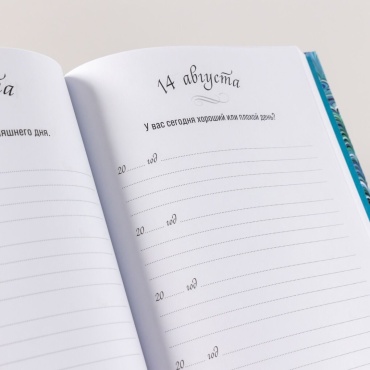 та
яшнего дня.
14 августа
У вас сегодня хороший или плохой день?
20...... год
20...... год
20...... год
20...... год